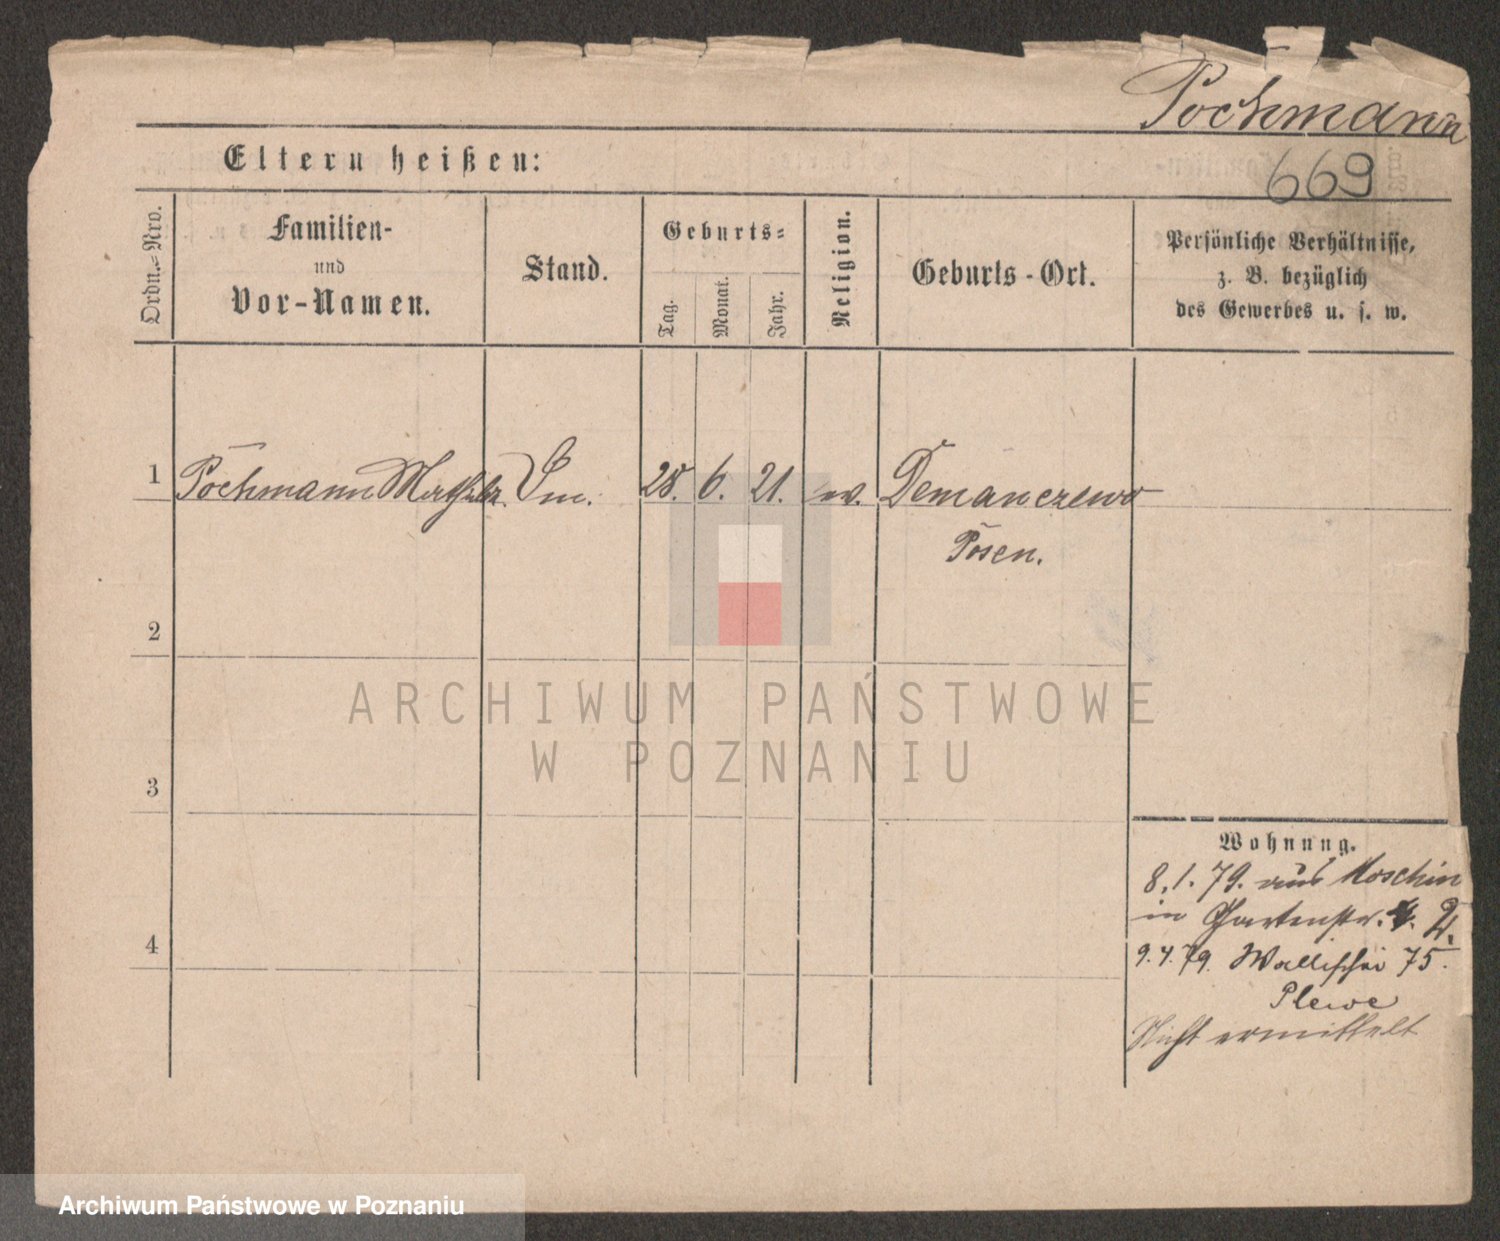 Pochmann
669
Eltern heißen:
Ordn.-Nro.
Familien-
und
Vor-Namen.
Stand.
Geburts-
Tag.
Monat.
Jahr.
Religion.
Geburts-Ort.
Persönliche Verhältnisse,
z. B. bezüglich
des Gewerbes u. s. w.
1
Pochmann 28. 6. 21. ev. Demanczewo
Posen.
2
3
4
Wohnung.
8.1.79. aus Moschin
in Gartenstr.
9.4.79. Wallischei 75.
Plewe
Nicht ermittelt
ARCHIWUM PAŃSTWOWE
W POZNANIU
Archiwum Państwowe w Poznaniu